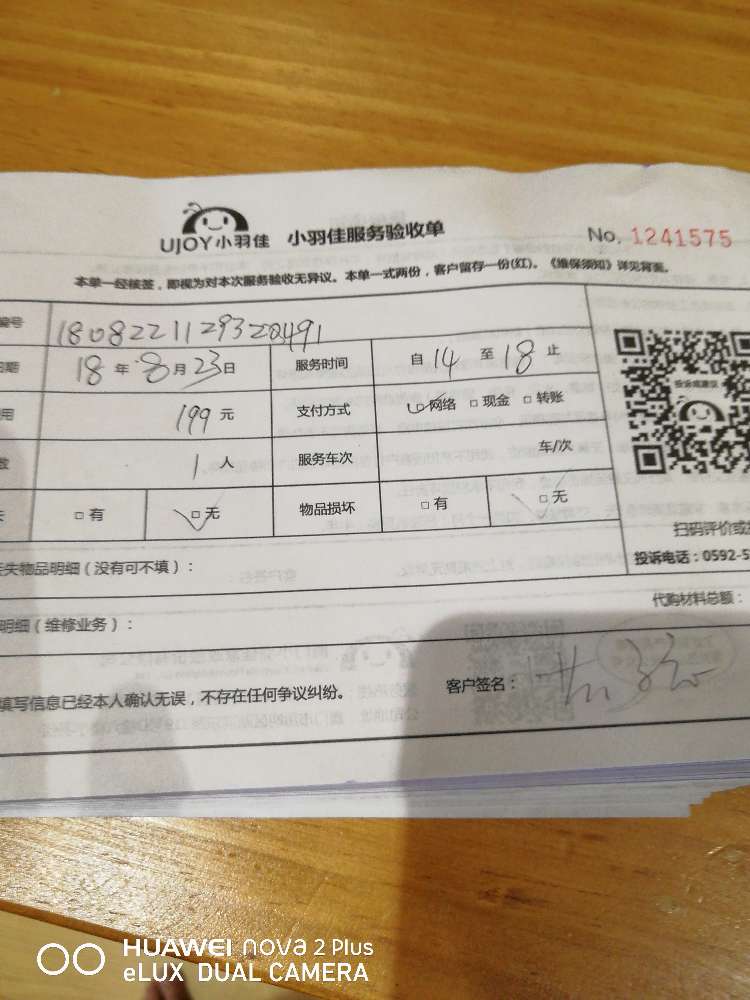 UJOY小羽佳 小羽佳服务验收单 No. 1241575
本单一经核签，即视为对本次服务验收无异议。本单一式两份，客户留存一份(红)。《维保须知》详见背面。
编号 180822112932Q491
日期 18年8月23日 服务时间 自14至18止
用 199元 支付方式 □网络 □现金 □转账
数 1人 服务车次 车/次
失 □有 □无 物品损坏 □有 □无
投诉或建议
扫码评价或
投诉电话：0592-5
失物品明细（没有可不填）：
代购材料总额：
明细（维修业务）：
填写信息已经本人确认无误，不存在任何争议纠纷。 客户签名：
HUAWEI nova 2 Plus
eLUX DUAL CAMERA